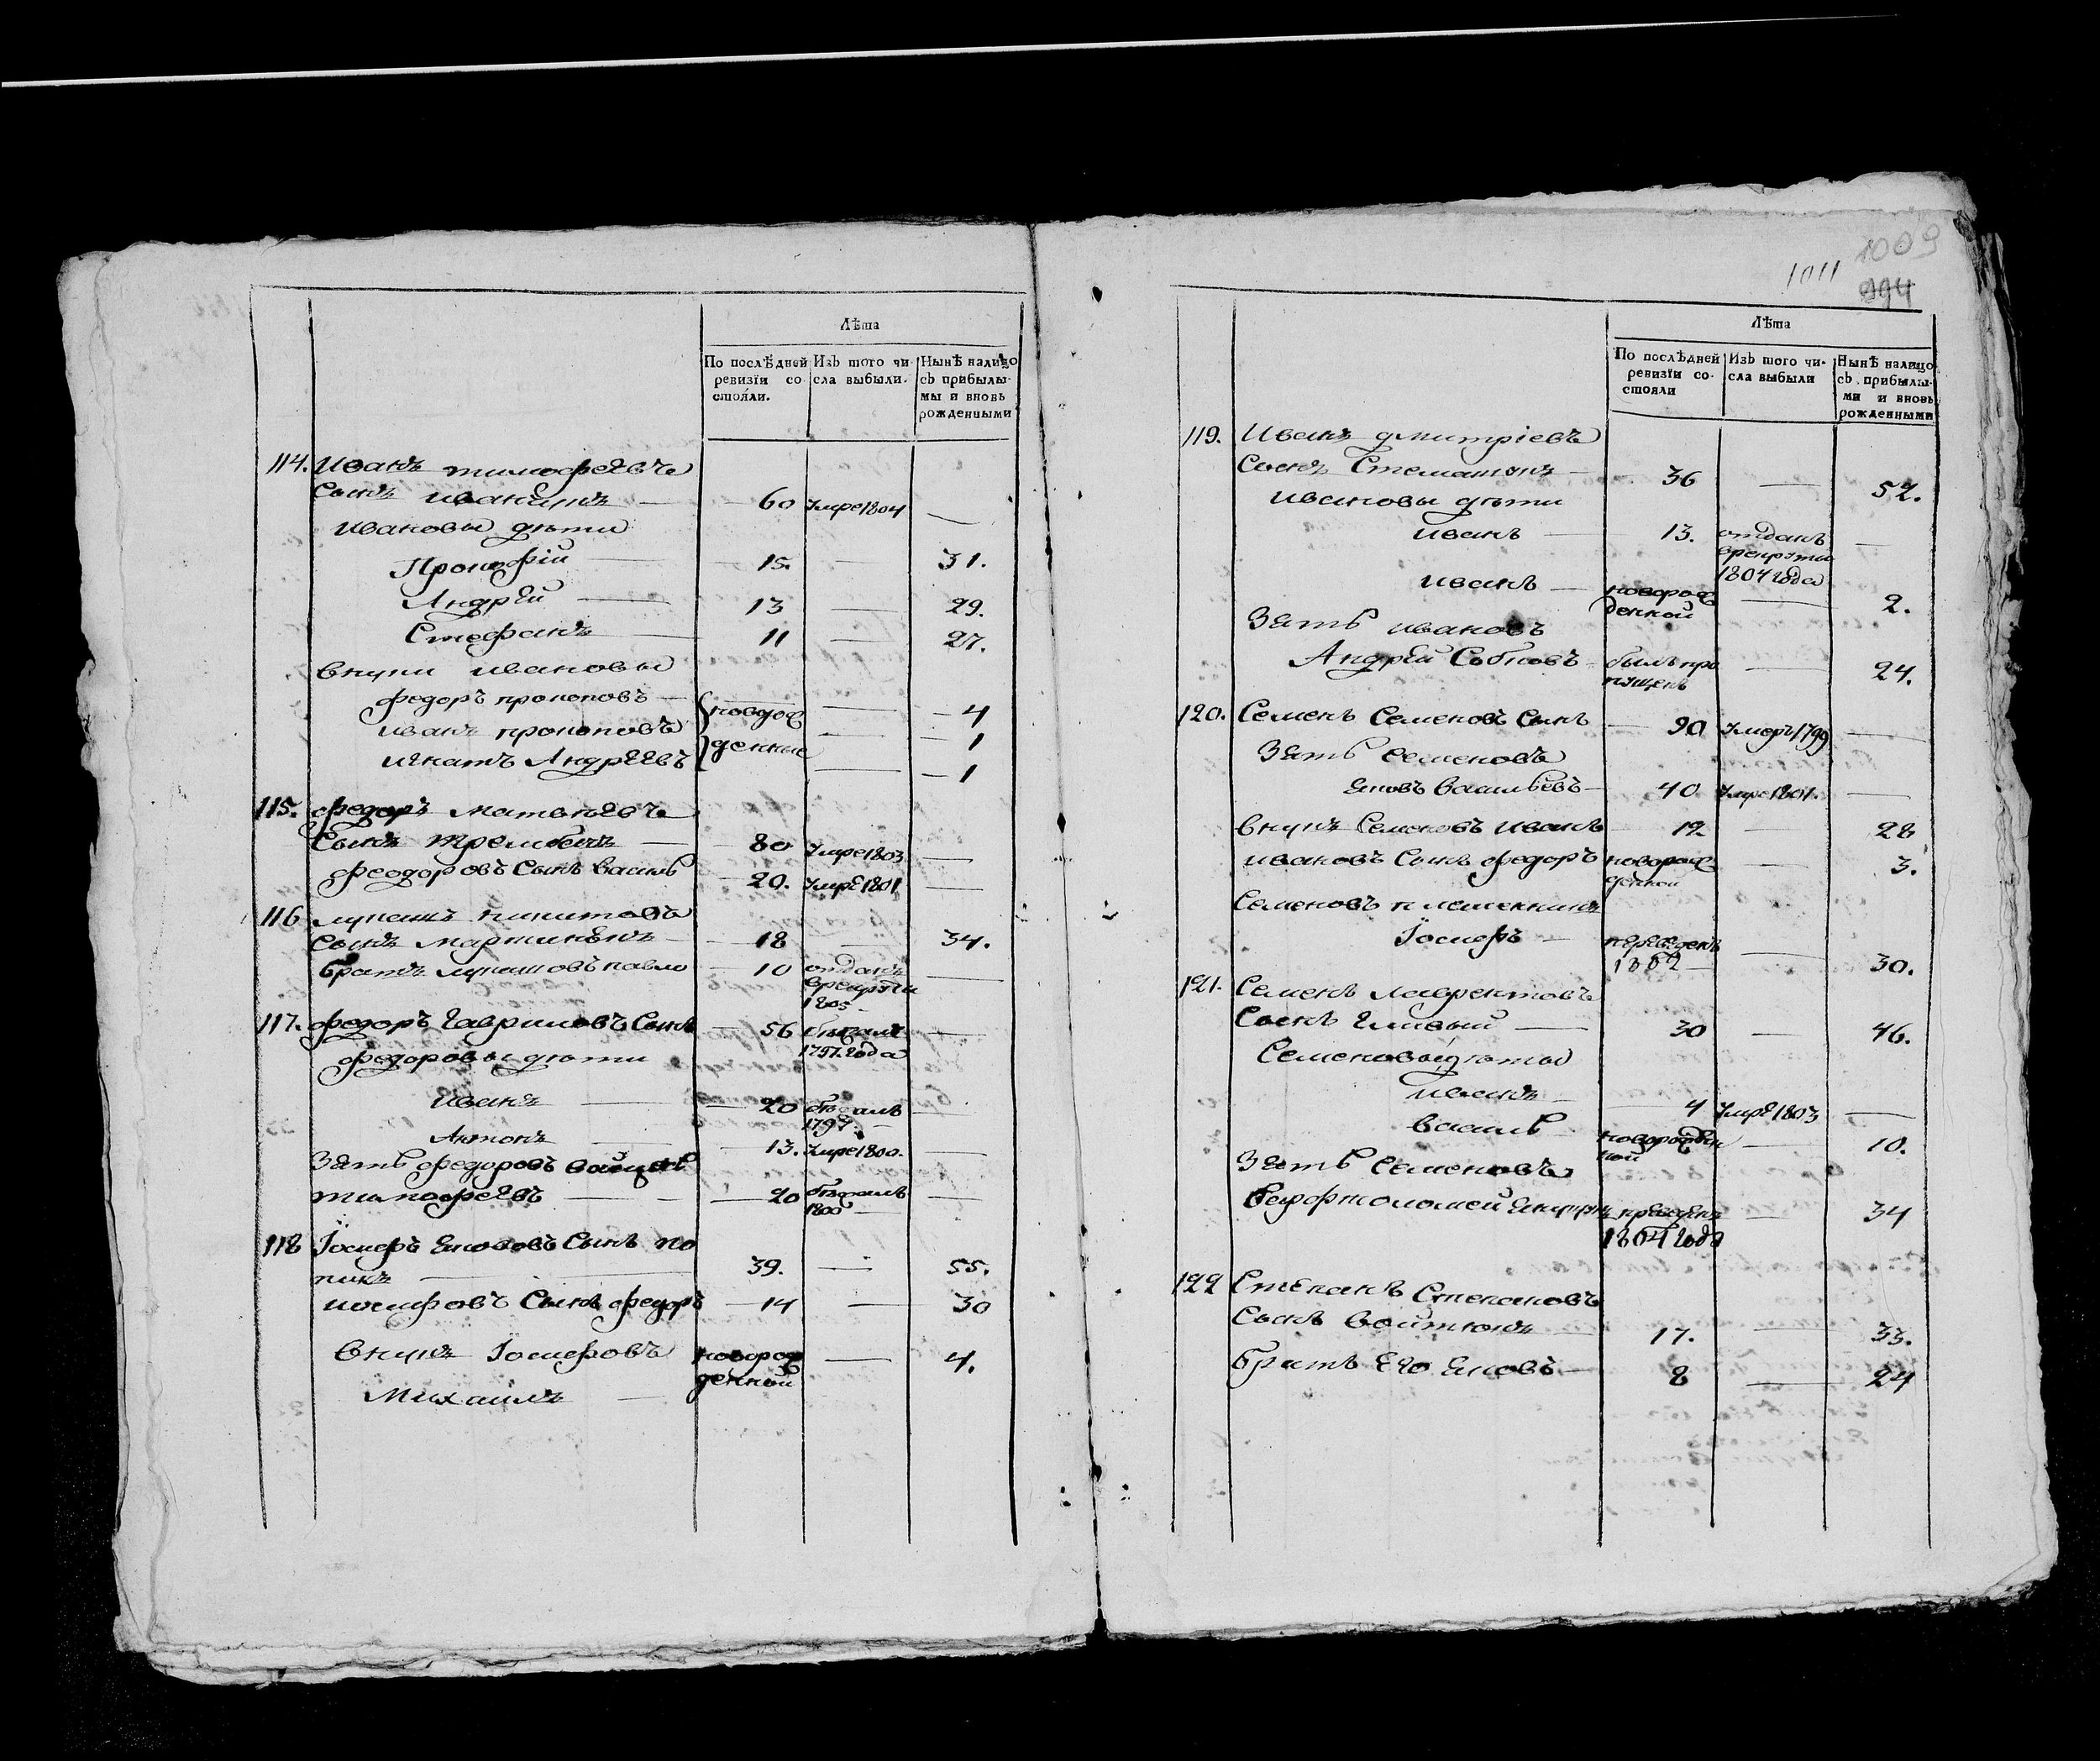 Лѣта
По послѣдней ревизїи состояли.
Изъ того числа выбыли.
Нынѣ налицо съ прибылыми и вновь рожденными
114. Иванъ тимофеевъ
Сынъ — 60 Умре 1804 —
Ивановы дѣти
Прокофїй — 15. — 31.
Андрей — 13 — 29.
Стефанъ — 11 — 27.
внуки ивановы
федоръ прокоповъ — новорож — 4
иванъ прокоповъ денные — 1
игнатъ Андреевъ — 1
115. федоръ матвѣевъ
Сынъ — 80 Умре 1803 —
феодоровъ Сынъ василь — 20. Умре 1801 —
116 лукашъ никитовъ
Сынъ — 18 — 34.
братъ лукашовъ павло — 10 отданъ
врекруты
1805
117. федоръ гавриловъ Сынъ — 56 бѣжалъ —
федоровы дѣти 1797. года
иванъ — 20 бѣжалъ —
1797. —
Антонъ — 13. Умре 1800. —
Зять федоровъ
тимофеевъ — 20 бѣжалъ —
1800 —
118 Їосифъ якововъ Сынъ по
пикъ — 39. — 55.
иосифовъ Сынъ федоръ — 14 — 30
внукъ Їосифовъ новорож — 4.
Михаилъ — денной
1009
1011 994
Лѣта
По послѣдней ревизїи состояли
Изъ того числа выбыли
Нынѣ налицо съ прибылыми и вновь рожденными
119. Иванъ дмитрїевъ
Сынъ — 36 — 52.
ивановы дѣти
иванъ — 13. отданъ —
врекруты
1804 года
иванъ — новорож — 2.
денной
Зять ивановъ
Андрей — былъ про — 24.
пущенъ
120. Семенъ Семеновъ Сынъ — 90 Умеръ 1799 —
Зять семеновъ
яковъ васильевъ — 40 Умре 1801. —
внукъ Семеновъ иванъ 12 — 28
ивановъ Сынъ федоръ новорож — 3.
денной
Семеновъ племенникъ
Їосифъ — переведенъ — 30.
1802 —
121. Семенъ лаврентовъ
Сынъ — 30 — 46.
Семеновы дѣты
иванъ — 4 Умре 1803 —
василь новорожден — 10.
ной
Зять Семеновъ
варфтоломей — 34
1804 года
122 Степанъ Степановъ
Сынъ — 17. — 33.
братъ Его яковъ — 8 — 24